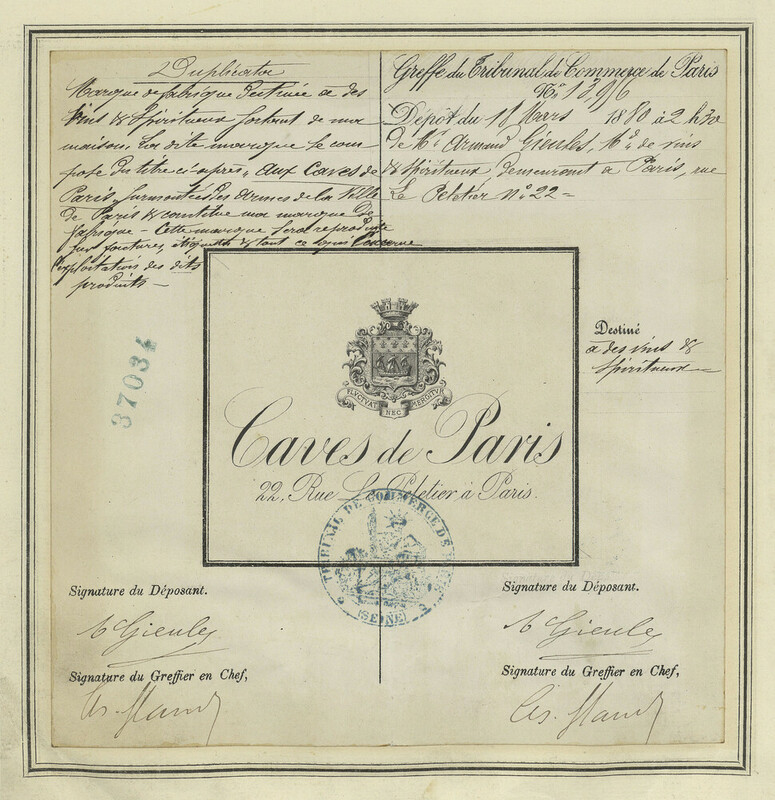 Duplicata
Marque de fabrique destinée a des
Vins & Spiritueux sortant de ma
maison. La dite marque se com
pose du titre ci-après "Aux Caves de
Paris, surmontées des armes de la Ville
de Paris & constitue ma marque de
fabrique — Cette marque sera reproduite
sur factures, étiquettes & tout ce qui concerne
l'exploitation des dits
produits —
Greffe du Tribunal de Commerce de Paris
No. 13,
Dépôt du Mars 1880 à 2 h 30
de Mr. Armand Gieules, Md. de vins
& spiritueux demeurant a Paris, rue
Le Peletier No. 22 =
Destiné
a des vins &
spiritueux
37034
FLUCTUAT NEC MERGITUR
Caves de Paris
22, Rue Le Peletier à Paris.
TRIBUNAL DE COMMERCE DE
(SEINE)
Signature du Déposant.
A Gieules
Signature du Greffier en Chef,
Signature du Déposant.
A Gieules
Signature du Greffier en Chef,